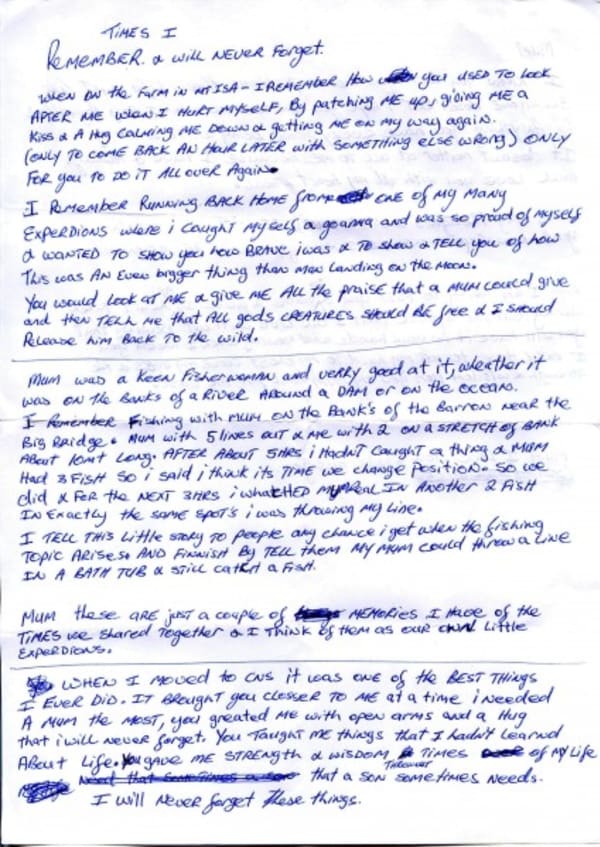 TIMES I
REMEMBER & will NEVER Forget.
WHEN ON the Farm in MT ISA - I REMEMBER How you USED TO LOOK
AFTER ME WHEN I HURT MYSELF, By patching ME up, giving ME a
Kiss & A Hug CALMING ME DOWN & getting ME ON my way again.
(ONLY TO COME BACK AN HOUR LATER with SOMETHING ELSE WRONG) ONLY
FOR you TO DO IT ALL OVER Again.
I REMEMBER RUNNING BACK HOME from ONE of my MANY
EXPERDIONS where i CAUGHT MYSELF a goanna and was so proud of myself
& WANTED TO SHOW you how BRAVE i was & TO show & TELL you of how
This was AN EVEN bigger thing then MAN LANDING ON the MOON.
You would LOOK AT ME & give ME ALL the PRAISE that a MUM COULD give
and then TELL ME that ALL gods CREATURES SHOULD BE free & I SHOULD
RELEASE him BACK TO the wild.
MUM was a KEEN Fisherwoman and verry good at it, wheather it
was ON the BANKS of a RIVER AROUND a DAM or on the OCEAN.
I Remember Fishing with MUM ON the BANK'S of the BARRON NEAR the
Big BRIDGE. MUM with 5 lines out & ME with 2 ON a STRETCH of BANK
About 10mt Long. AFTER ABOUT 5HRS i HADNT CAUGHT a thing & MUM
HAD 3 FISH SO i said i think its TIME we change POSITION. SO we
did & FOR the NEXT 3HRS i whatcHED MUM Real IN Another 2 FISH
IN EXACTLY the SAME SPOT'S i was throwing MY LINE.
I TELL THIS Little STORY TO people any chance i get when the fishing
TOPIC ARISES. AND FINNISH By TELL them MY MUM COULD throw a LINE
IN A BATH TUB & STILL catch a FISH.
MUM these ARE JUST a COUPLE of MEMORIES I HAVE of the
TIMES we SHARED TOGETHER & I THINK of them as our OWN Little
EXPERDIONS.
WHEN I MOVED to CNS it was ONE of the BEST THINGS
I EVER DID. IT BROUGHT you CLOSSER TO ME at a time i NEEDED
A MUM the MOST, you greated ME with open arms and a Hug
that i will never forget. You TAUGHT ME things that I HADN'T LEARNED
About Life. You GAVE ME STRENGTH & WISDOM TIMES of MY Life
that a SON SOMETIMES NEEDS.
I will NEVER FORGET these things.